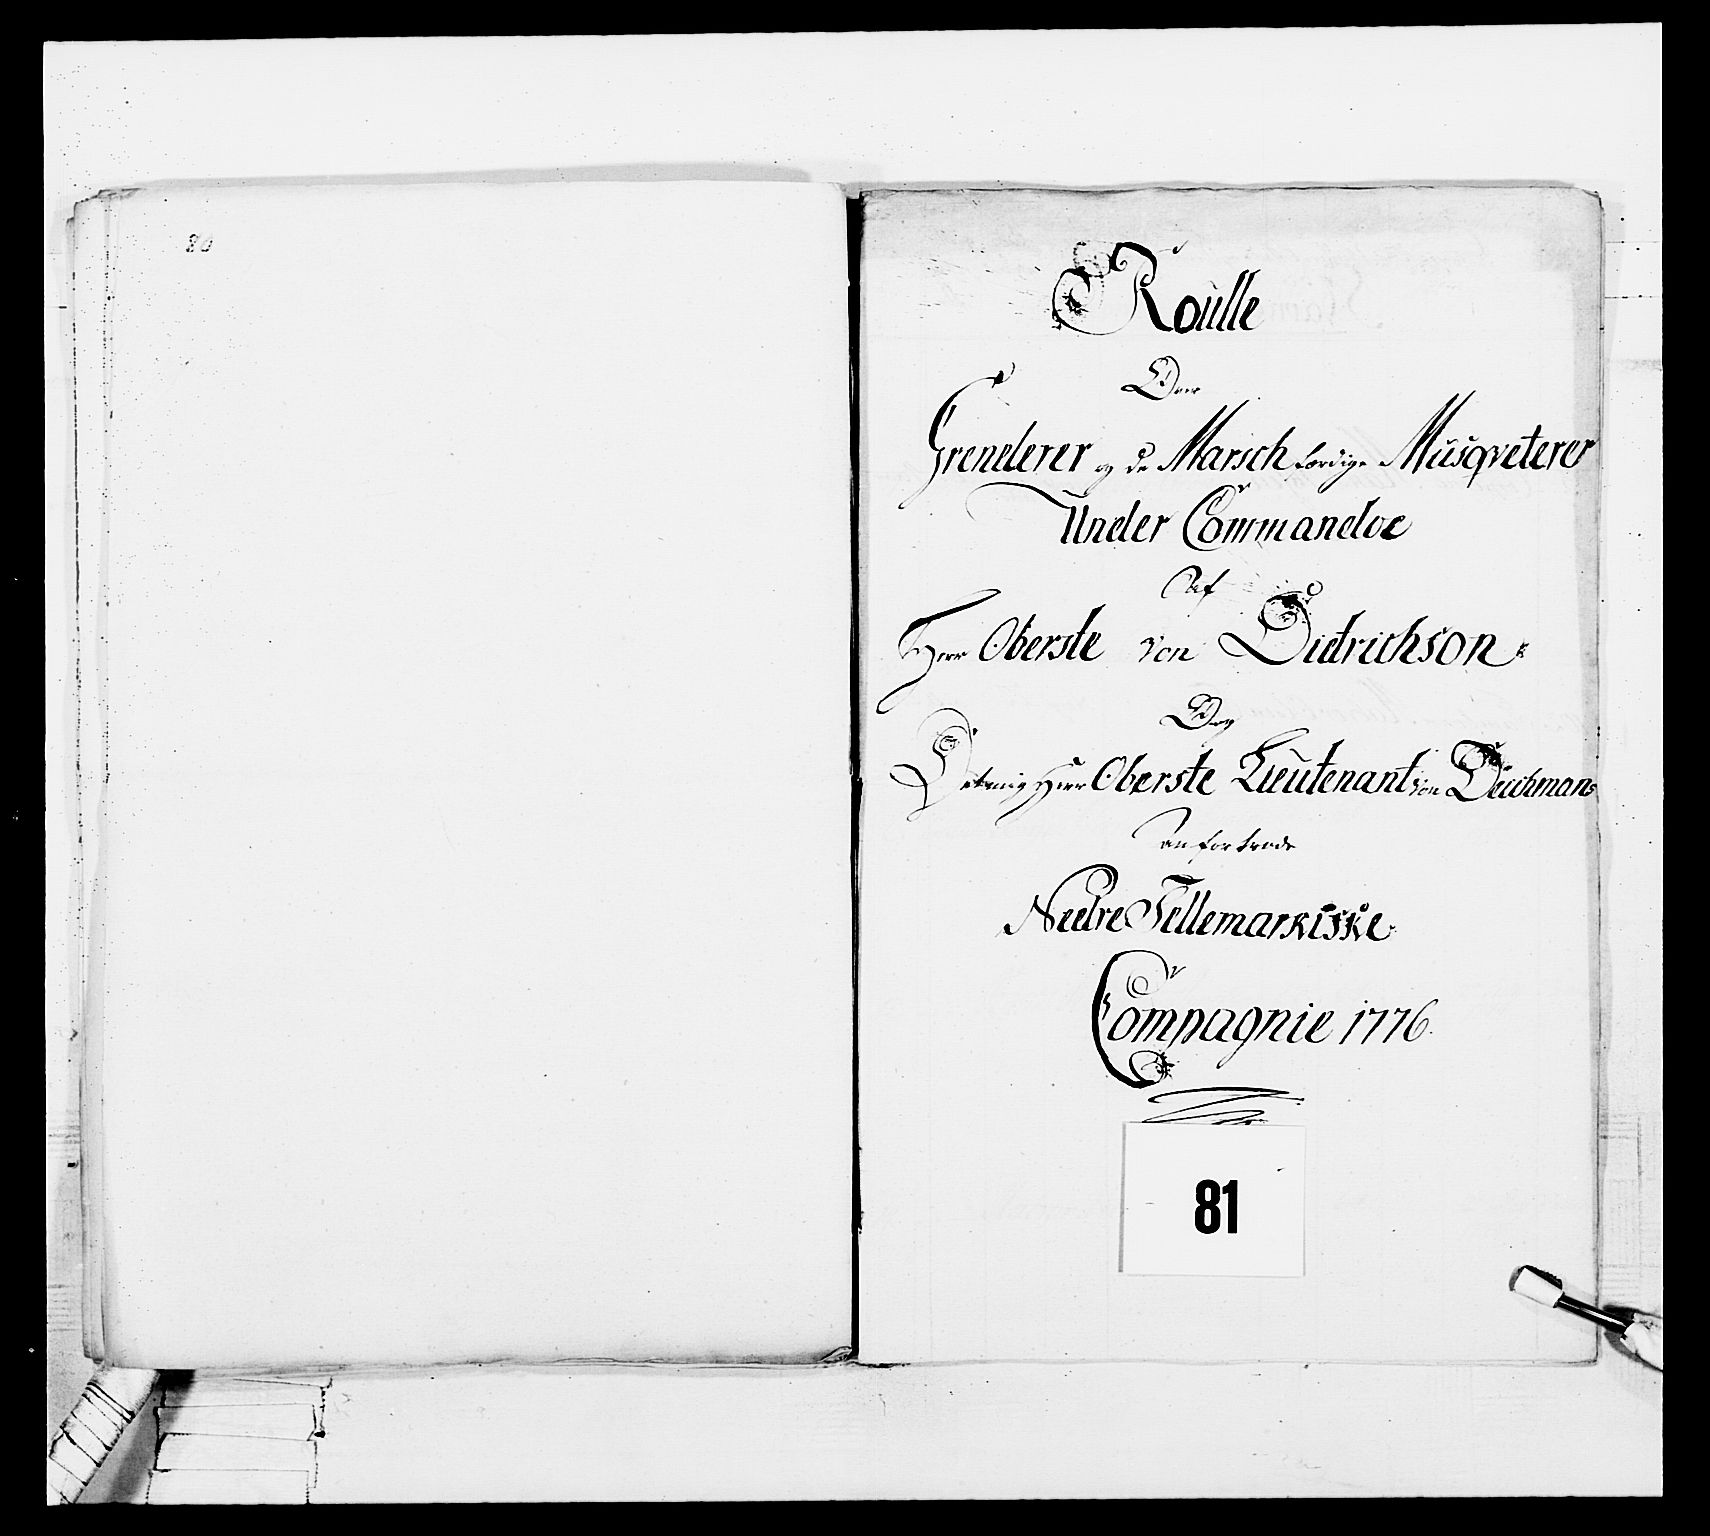 80
Roulle
Over
Grenderer og de Marsch færdige Musqveterer
Under Commandoe
Af
Herr Oberste von Dietrichson
Og
Herr Oberste Lieutenant von Deichmans
anfortrode
Nedre Tellemarkiske
Compagnie 1776.
81